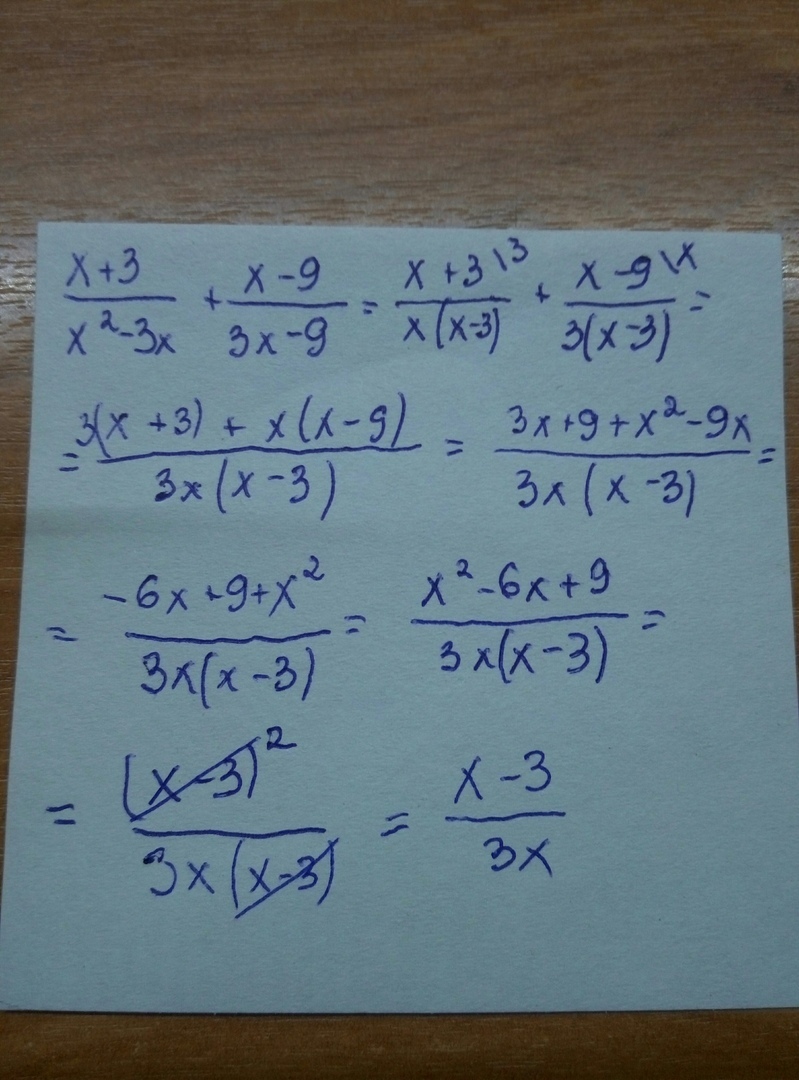 \frac{x+3}{x^2-3x} + \frac{x-9}{3x-9} = \frac{x+3^{\backslash 3}}{x(x-3)} + \frac{x-9^{\backslash x}}{3(x-3)} =
= \frac{3(x+3)+x(x-9)}{3x(x-3)} = \frac{3x+9+x^2-9x}{3x(x-3)} =
= \frac{-6x+9+x^2}{3x(x-3)} = \frac{x^2-6x+9}{3x(x-3)} =
= \frac{(x-3)^2}{3x(x-3)} = \frac{x-3}{3x}